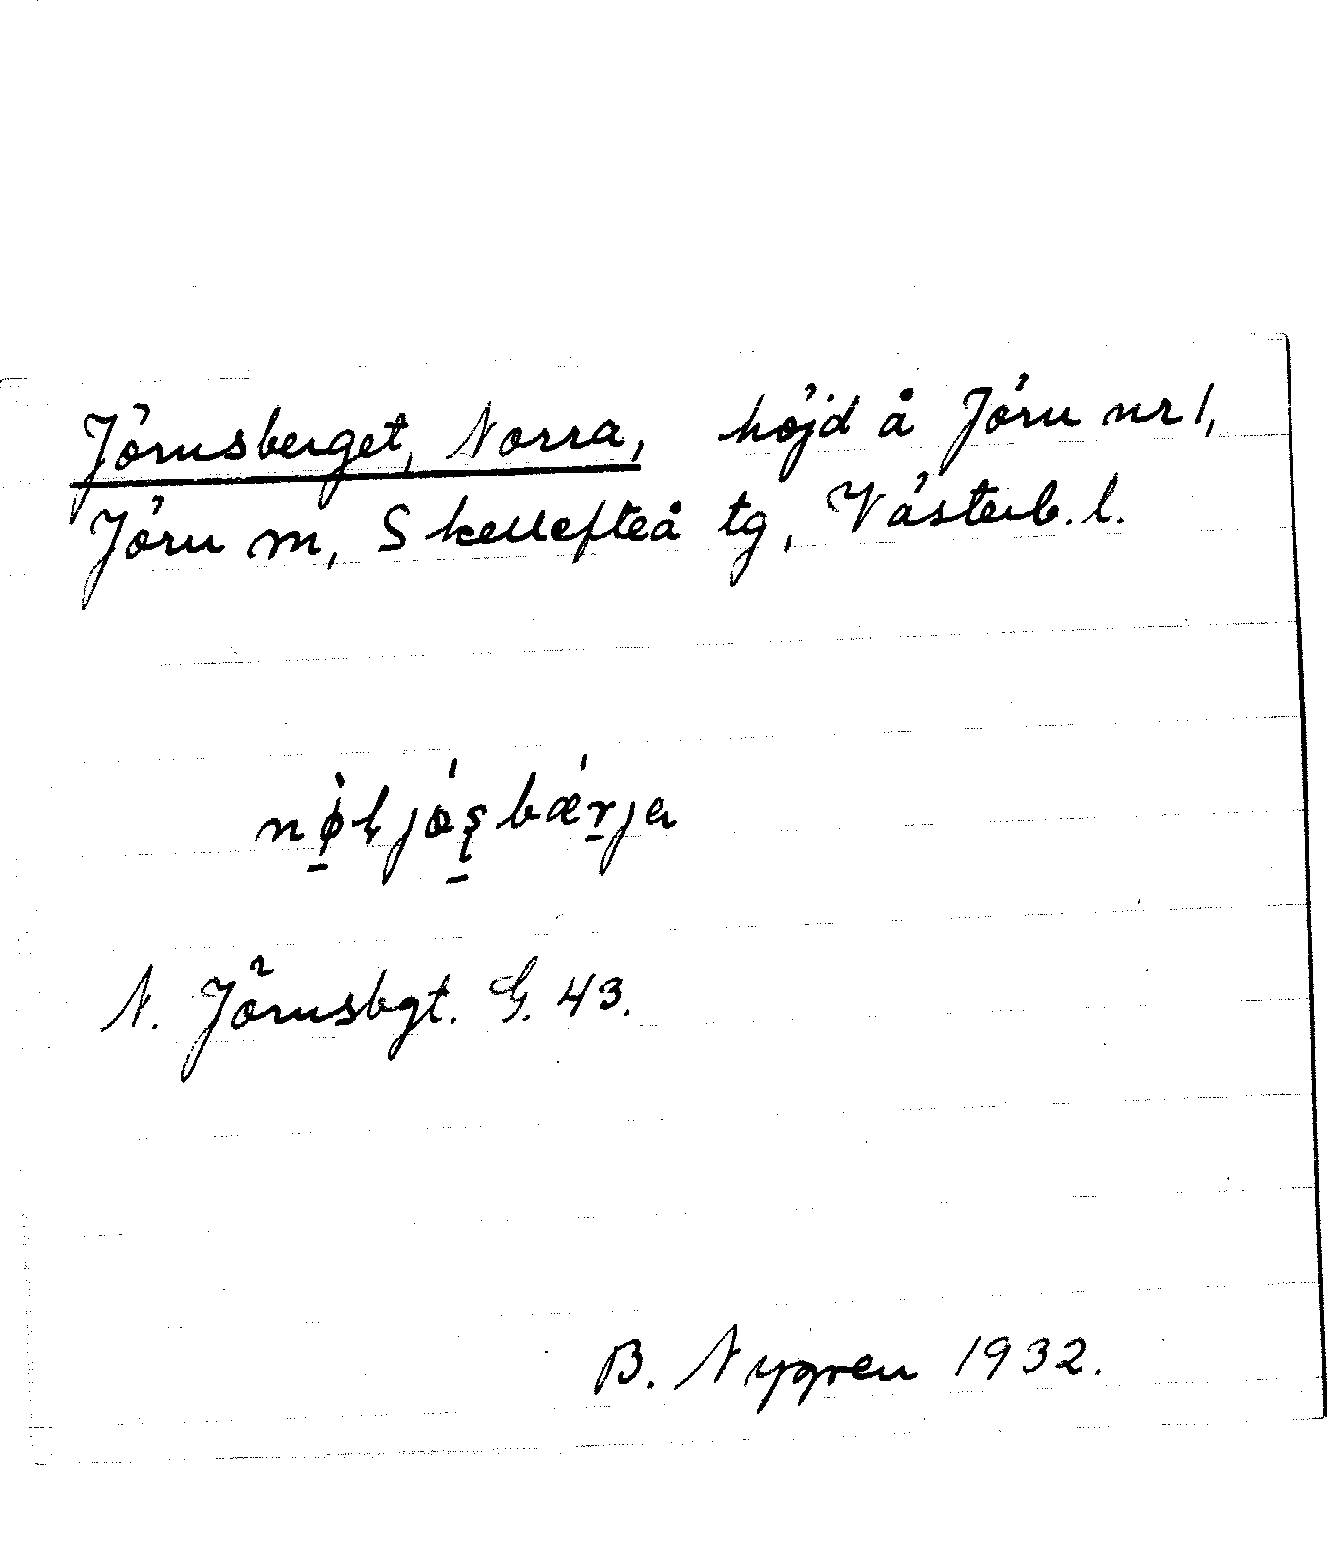 Jörnsberget, Norra, höjd å Jörn nr 1,
Jörn m, Skellefteå tg, Västerb. l.
N. Jörnsbgt. G. 43.
B. Nygren 1932.